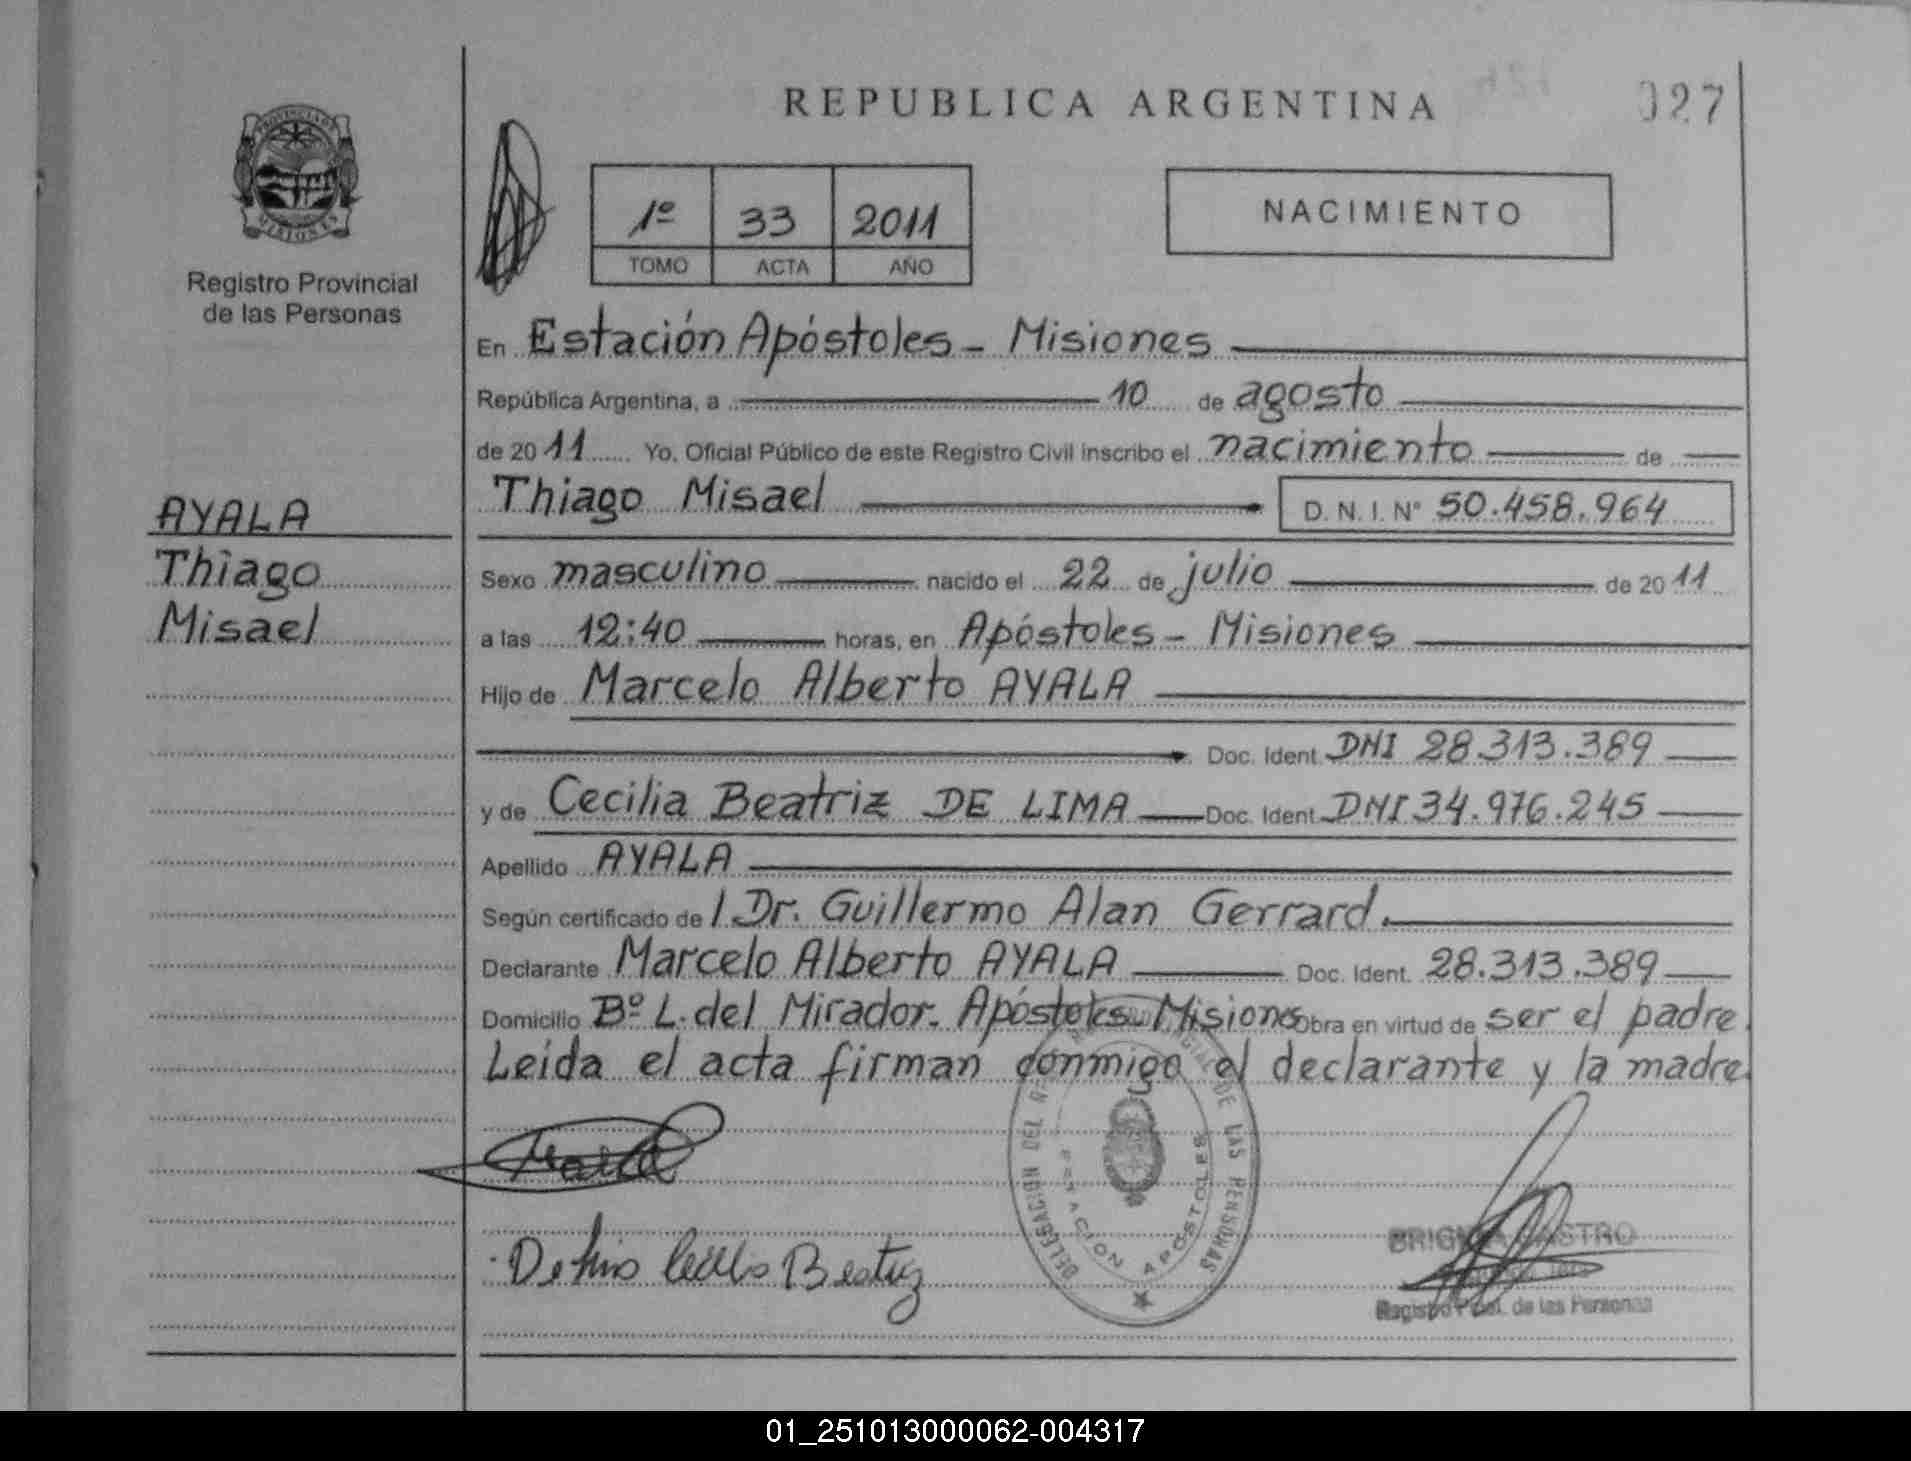 REPUBLICA ARGENTINA
027
PROVINCIA DE
MISIONES
Registro Provincial
de las Personas
1º 33 2011
TOMO ACTA AÑO
NACIMIENTO
En Estación Apóstoles - Misiones
República Argentina, a 10 de agosto
de 2011 Yo, Oficial Público de este Registro Civil inscribo el nacimiento de
Thiago Misael D. N. I. Nº 50.458.964
AYALA
Thiago
Misael
Sexo masculino nacido el 22 de julio de 2011
a las 12:40 horas, en Apóstoles - Misiones
Hijo de Marcelo Alberto AYALA
Doc. Ident. DNI 28.313.389
y de Cecilia Beatriz DE LIMA Doc. Ident. DNI 34.976.245
Apellido AYALA
Según certificado de l Dr. Guillermo Alan Gerrard.
Declarante Marcelo Alberto AYALA Doc. Ident. 28.313.389
Domicilio Bº L. del Mirador. Apóstoles - Misiones Obra en virtud de ser el padre.
Leída el acta firman conmigo el declarante y la madre.
DELEGACION DEL PROVINCIAL DE LAS PERSONAS
ESTACION APOSTOLES
De Lima Cecilia Beatriz
CASTRO
Registro Pcial. de las Personas
01_251013000062-004317